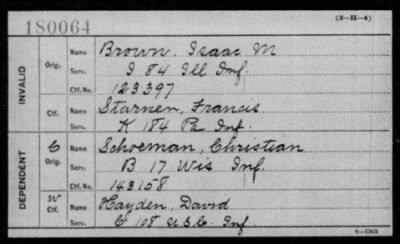 180064
(3-H-4)
INVALID
Orig.
Name Brown, Isaac M
Serv. I 84 Ill Inf.
Ctf. No. 123397
Ctf.
Name Starnen, Francis
Serv. K 184 Pa Inf.
DEPENDENT
C
Orig.
Name Schoeman, Christian
Serv. B 17 Wis Inf.
Ctf. No. 143158
W
Ctf.
Name Hayden, David
Serv. C 108 U.S.C. Inf.